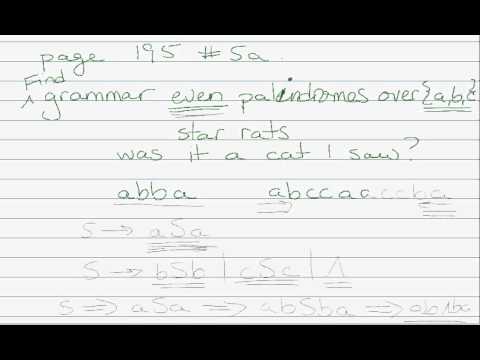 page 195 # 5a.
Find
^ grammar even palindromes over {a,b,c}
star rats
was it a cat I saw?
abba abccaaccba
S → aSa
S → bSb | cSc | Λ
S ⇒ aSa ⇒ abSba ⇒ abΛba